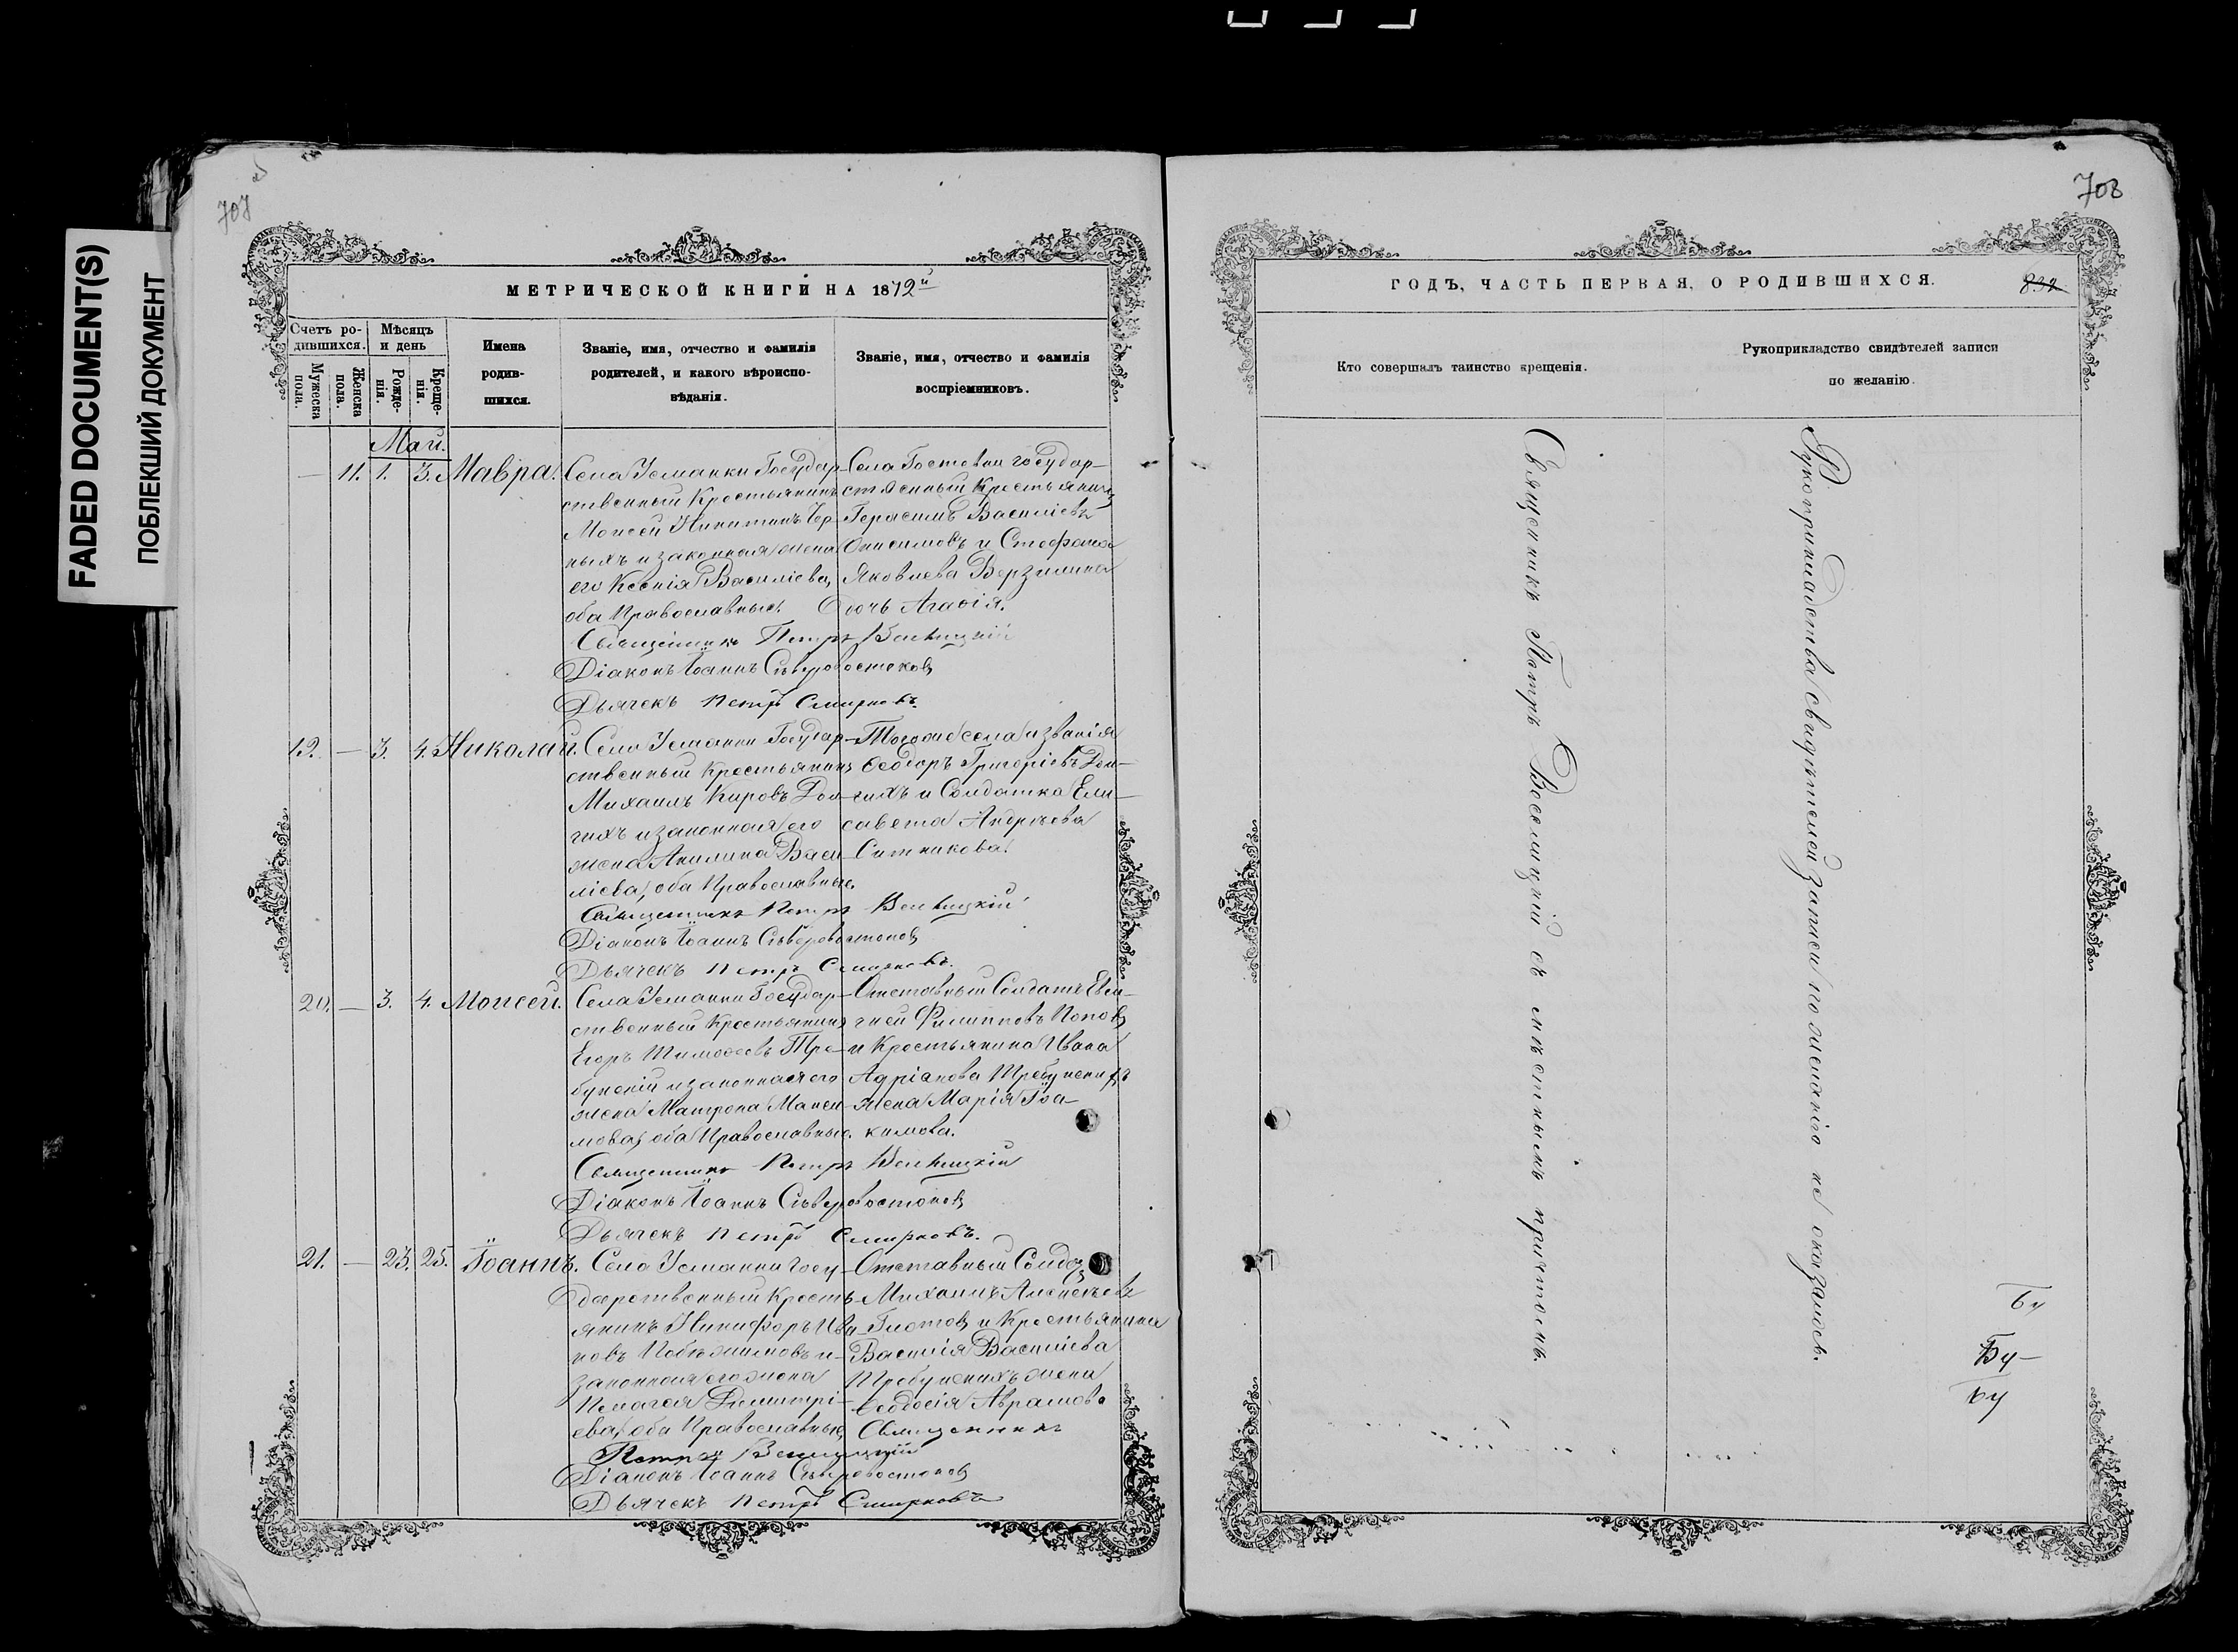 FADED DOCUMENT(S)
ПОБЛЕКШИЙ ДОКУМЕНТ
707
МЕТРИЧЕСКОЙ КНИГИ НА 1872й
Счетъ ро-
дившихся.
Мужеска
пола.
Женска
пола.
Мѣсяцъ
и день
Рожде-
нія.
Креще-
нія.
Имена
родив-
шихся.
Званіе, имя, отчество и фамилія
родителей, и какого вѣроиспо-
вѣданія.
Званіе, имя, отчество и фамилія
воспріемниковъ.
Май.
— 11. 1. 3. Мавра.
Села Усманки Государ-
ственный Крестьянинъ
Моисей Никитинъ Чер-
ныхъ и законная жена
его Ксенія Василіева,
оба Православные.
Села Гостевки государ-
ственный Крестьянинъ
Герасимъ Василіевъ
Онисимовъ и Стефана
Яковлева Верзилина
дочь Агаѳія.
Священникъ Петръ
Діаконъ Іоаннъ Сѣверовостоковъ
Дьячекъ Петръ Смирновъ.
19. — 3. 4. Николай.
Села Усманки Государ-
ственный Крестьянинъ
Михаилъ Кировъ Дол-
гихъ и законная его
жена Акилина Васи-
ліева, оба Православные.
Тогоже села и званія
Ѳеодоръ Григоріевъ Дол-
гихъ и Солдатка Ели-
савета Андрѣева
Ситникова.
Священникъ Петръ
Діаконъ Іоаннъ Сѣверовостоковъ
Дьячекъ Петръ Смирновъ.
20. — 3. 4. Моисей.
Села Усманки Государ-
ственный Крестьянинъ
Егоръ Тимоѳеевъ Тре-
бунскій и законная его
жена Матрона Макси-
мова, оба Православные.
Отставный Солдатъ Евге-
ній Филипповъ Поповъ
и Крестьянина Ивана
Адріанова Требунскихъ
жена Марія Іоа-
кимова.
Священникъ Петръ
Діаконъ Іоаннъ Сѣверовостоковъ
Дьячекъ Петръ Смирновъ.
21. — 23. 25. Іоаннъ.
Села Усманки Госу-
дарственный Кресть-
янинъ Никифоръ Ива-
новъ и
законная его жена
Пелагея Димитрі-
ева, оба Православные
Отставный Солдатъ
Михаилъ Алексѣевъ
Глотовъ и Крестьянина
Василія Василіева
Требунскихъ жена
Ѳеодосія Аврамова
Священникъ
Петръ
Діаконъ Іоаннъ Сѣверовостоковъ
Дьячекъ Петръ Смирновъ
708
ГОДЪ, ЧАСТЬ ПЕРВАЯ, О РОДИВШИХСЯ.
832
Кто совершалъ таинство крещенія.
Рукоприкладство свидѣтелей записи
по желанію.
Священникъ Петръ съ мѣстнымъ причтомъ.
Рукоприкладства свидѣтелей записи по желанію не оказалось.